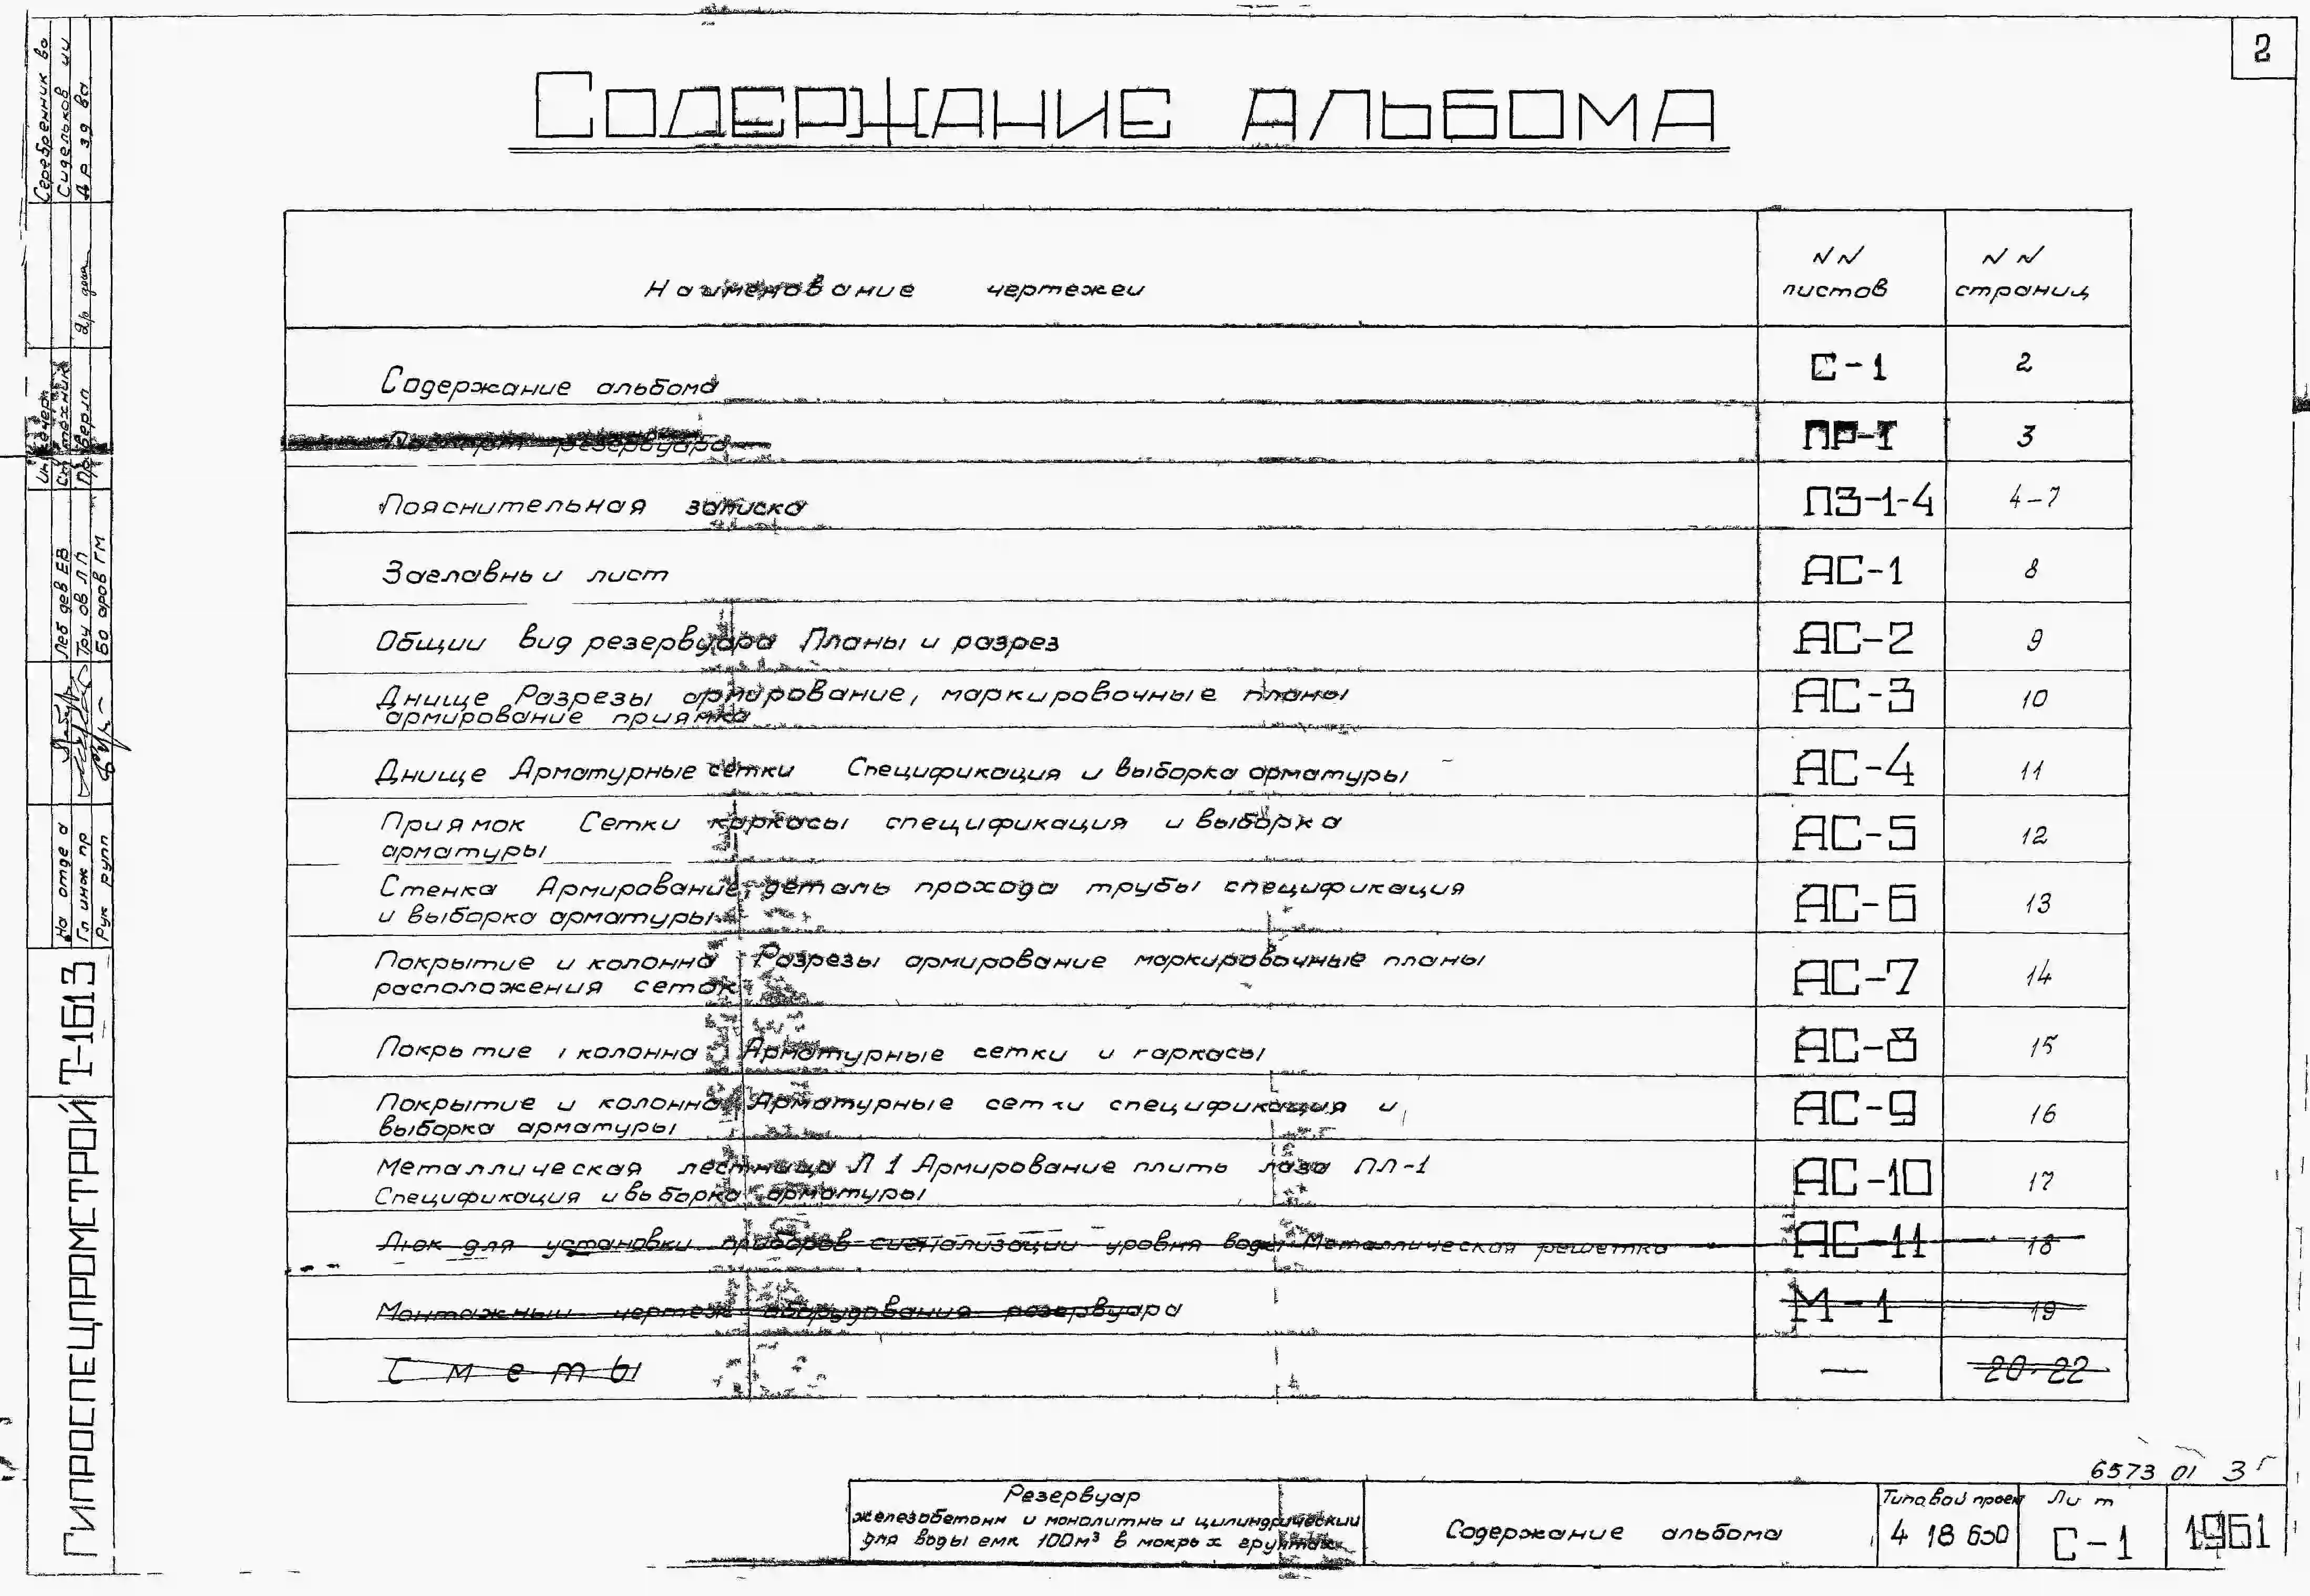 2
СОДЕРЖАНИЕ АЛЬБОМА
Наименование чертежеи
NN листов
NN страниц
Содержание альбома С-1 2
резервуара ПР-1 3
Пояснительная записка ПЗ-1-4 4-7
Заглавны и лист АС-1 8
Общии вид резервуара Планы и разрез АС-2 9
Днище Разрезы армирование, маркировочные планы АС-3 10
армирование приямка
Днище Арматурные сетки Спецификация и выборка арматуры АС-4 11
Приямок Сетки каркасы спецификация и выборка АС-5 12
арматуры
Стенка Армирование, деталь прохода трубы спецификация АС-6 13
и выборка арматуры
Покрытие и колонна Разрезы армирование маркировочные планы АС-7 14
расположения сеток
Покрытие колонна Арматурные сетки и каркасы АС-8 15
Покрытие и колонна Арматурные сетки спецификация и АС-9 16
выборка арматуры
Металлическая лестница Л 1 Армирование плить лаза ПЛ-1 АС-10 17
Спецификация и выборка арматуры
Люк для установки приборов сигнализации уровня воды Металлическая решетка АС-11 18
Монтажныи чертеж оборудования резервуара М-1 19
Сметы — 20-22
6573 01 3
Резервуар
железобетонн и монолитнь и цилиндрический
для воды емк 100м³ в мокрых грунтах
Содержание альбома
Типовой проект
4 18 650
Ли т
С-1
1961
ГИПРОСПЕЦПРОМСТРОЙ
Т-1613
На отдела
Гл инж пр
Рук групп
Леб дев ЕВ
Тру ов Л П
Бо аров ГМ
Проверил
Серебренник во
Сидельков